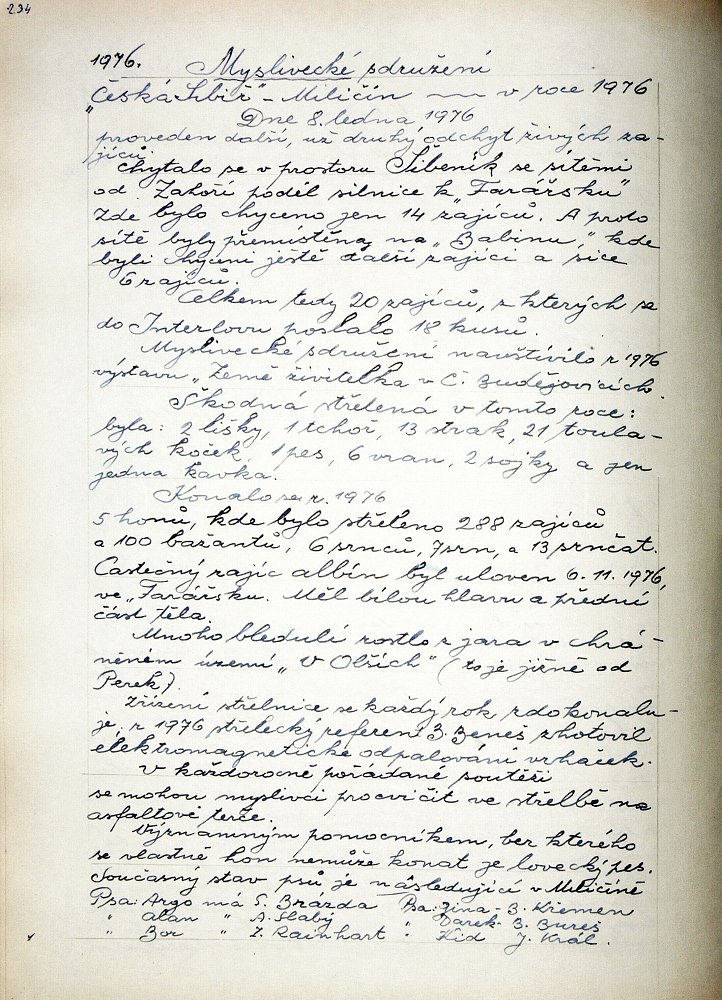 234
1976. Myslivecké sdružení
"Česká Sibiř" - Miličín — v roce 1976
Dne 8. ledna 1976
proveden další, už druhý odchyt živých za-
jíců.
Chytalo se v prostoru Šibeník se sítěmi
od Zahoří podél silnice k "Farářsku"
Zde bylo chyceno jen 14 zajíců. A proto
sítě byly přemístěny na "Babinu", kde
byli chyceni ještě další zajíci a sice
6 zajíců.
Celkem tedy 20 zajíců, z kterých se
do Interlovu poslalo 18 kusů.
Myslivecké sdružení navštívilo r 1976
výstavu "Země živitelka v Č. Budějovicích.
Škodná střelená v tomto roce:
byla: 2 lišky, 1 tchoř, 13 strak, 21 toula-
vých koček, 1 pes, 6 vran, 2 sojky a jen
jedna kavka.
Konalo se r. 1976
5 honů, kde bylo střeleno 288 zajíců
a 100 bažantů, 6 srnců, 7 srn, a 13 srnčat.
Častečný zajíc albín byl uloven 6. 11. 1976,
ve "Farářsku. Měl bílou hlavu a přední
část těla.
Mnoho bledulí rostlo z jara v chrá-
něném území "V Olších" (to je jižně od
Perek).
Zřízení střelnice se každý rok zdokonalu-
je. r 1976 střelecký referent B. Beneš zhotovil
elektromagnetické odpalování vrhaček.
V každoročně pořádané soutěži
se mohou myslivci procvičit ve střelbě na
asfaltové terče.
Významným pomocníkem, bez kterého
se vlastně hon nemůže konat je lovecký pes.
Současný stav psů je následující v Miličíně
Psa: Argo má S. Brázda Psa: Zina - B. Křemen
" Alan " A. Slabý " Darek - B. Bureš
" Bor " Z. Rainhart " Kid J. Král.